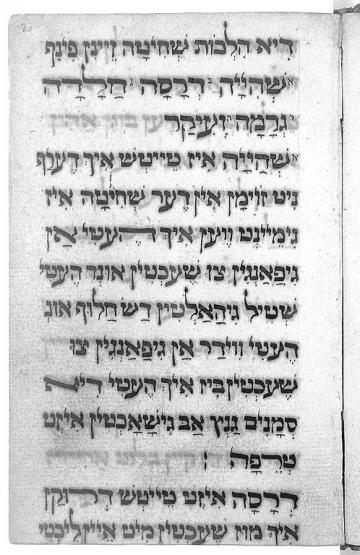 דִיא הִלְכוֹת שְׁחִיטָה זַיְינְן פִינְף
שְׁהִיָּיה דְרָסָה חֲלָדָה
גְרָמָה וְעִיקָר
שְׁהִיָּיה אִיז טַייטְשׁ אִיךְ דֶערְף
נִיט זוֹיְמִין אִין דֶער שְׁחִיטָה אִיז
גִימֵיינְט ווֶען אִיךְ הֶעטִי אָן
גִיפַאנְגִין צוּ שֶׁעכְטִין אוּנְד הֶעטִי
שְׁטִיל גִיהַאלְטִין דַשׁ חַלוּף אוּנ
הֶעטִי ווִידַר אַן גִיפַאנְגִין צוּ
שֶׁעכְטִין בִּיז אִיךְ הֶעטִי דִיא
סִמָנִים גַנְץ אַב גִישָׁאכְטִין אִיזְט
טְרֵפָה :
דְרָסָה אִיזְט טַייטְשׁ דְרוּקְן
אִיךְ מוּז שֶׁעכְטִין מִיט אַיין לִיכְטִי